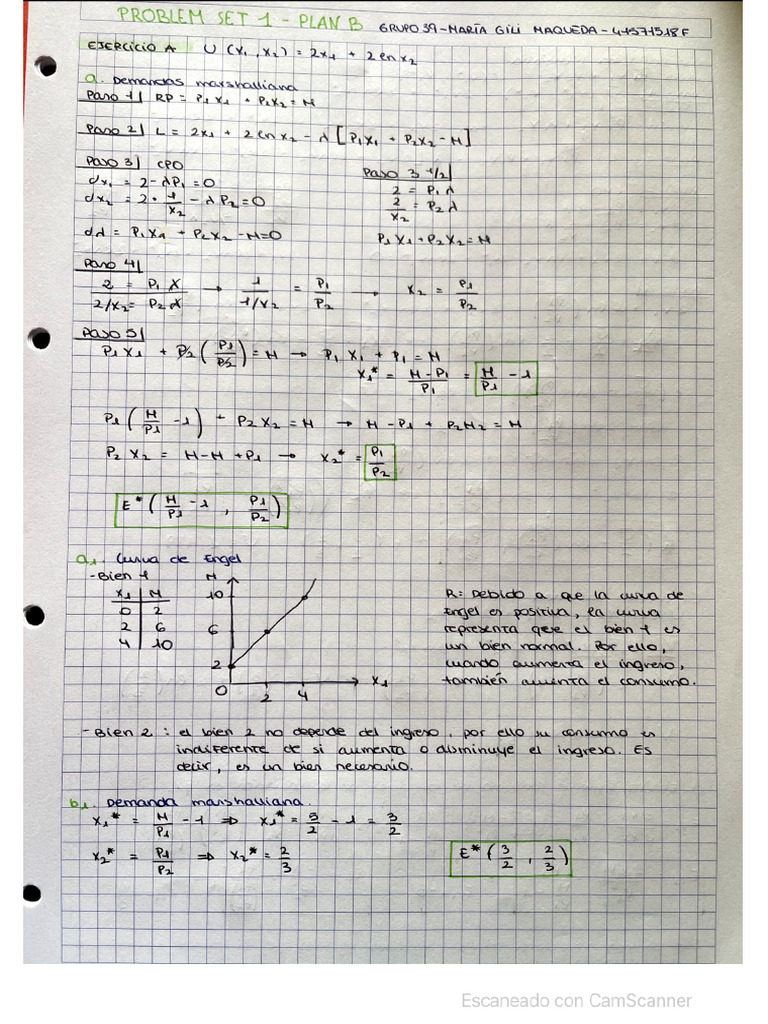 PROBLEM SET 1 - PLAN B GRUPO 39 - MARÍA GILI MAQUEDA - 41571518F
EJERCICIO A U (x1, x2) = 2x1 + 2 ln x2
a. Demandas marshalliana
Paso 1| RP = P1 X1 + P2 X2 = M
Paso 2| L = 2x1 + 2 ln x2 - λ [P1X1 + P2X2 - M]
Paso 3| CPO
dx1 = 2 - λP1 = 0
dx2 = 2 · 1/x2 - λ P2 = 0
dλ = P1 X1 + P2 X2 - M = 0
Paso 3 1/2|
2 = P1 λ
2/x2 = P2 λ
P1 X1 + P2 X2 = M
Paso 4|
2 / 2/x2 = P1 λ / P2 λ → 1 / 1/x2 = P1/P2 → x2 = P1/P2
Paso 5|
P1 X1 + P2 (P1/P2) = M → P1 X1 + P1 = M
X1* = M - P1 / P1 = M/P1 - 1
P1 (M/P1 - 1) + P2 X2 = M → M - P1 + P2 M2 = M
P2 X2 = M - M + P1 → X2* = P1/P2
E* (M/P1 - 1 , P1/P2)
a1. Curva de Engel
- Bien 1
X1 | M
0 | 2
2 | 6
4 | 10
M
10
6
2
0 2 4 X1
R: Debido a que la curva de
Engel es positiva, la curva
representa que el bien 1 es
un bien normal. Por ello,
cuando aumenta el ingreso,
también aumenta el consumo.
- Bien 2 : el bien 2 no depende del ingreso, por ello su consumo es
indiferente de si aumenta o disminuye el ingreso. Es
decir, es un bien necesario.
b1. Demanda marshalliana.
X1* = M/P1 - 1 ⇒ X1* = 5/2 - 1 = 3/2
X2* = P1/P2 ⇒ X2* = 2/3
E* (3/2 , 2/3)
Escaneado con CamScanner